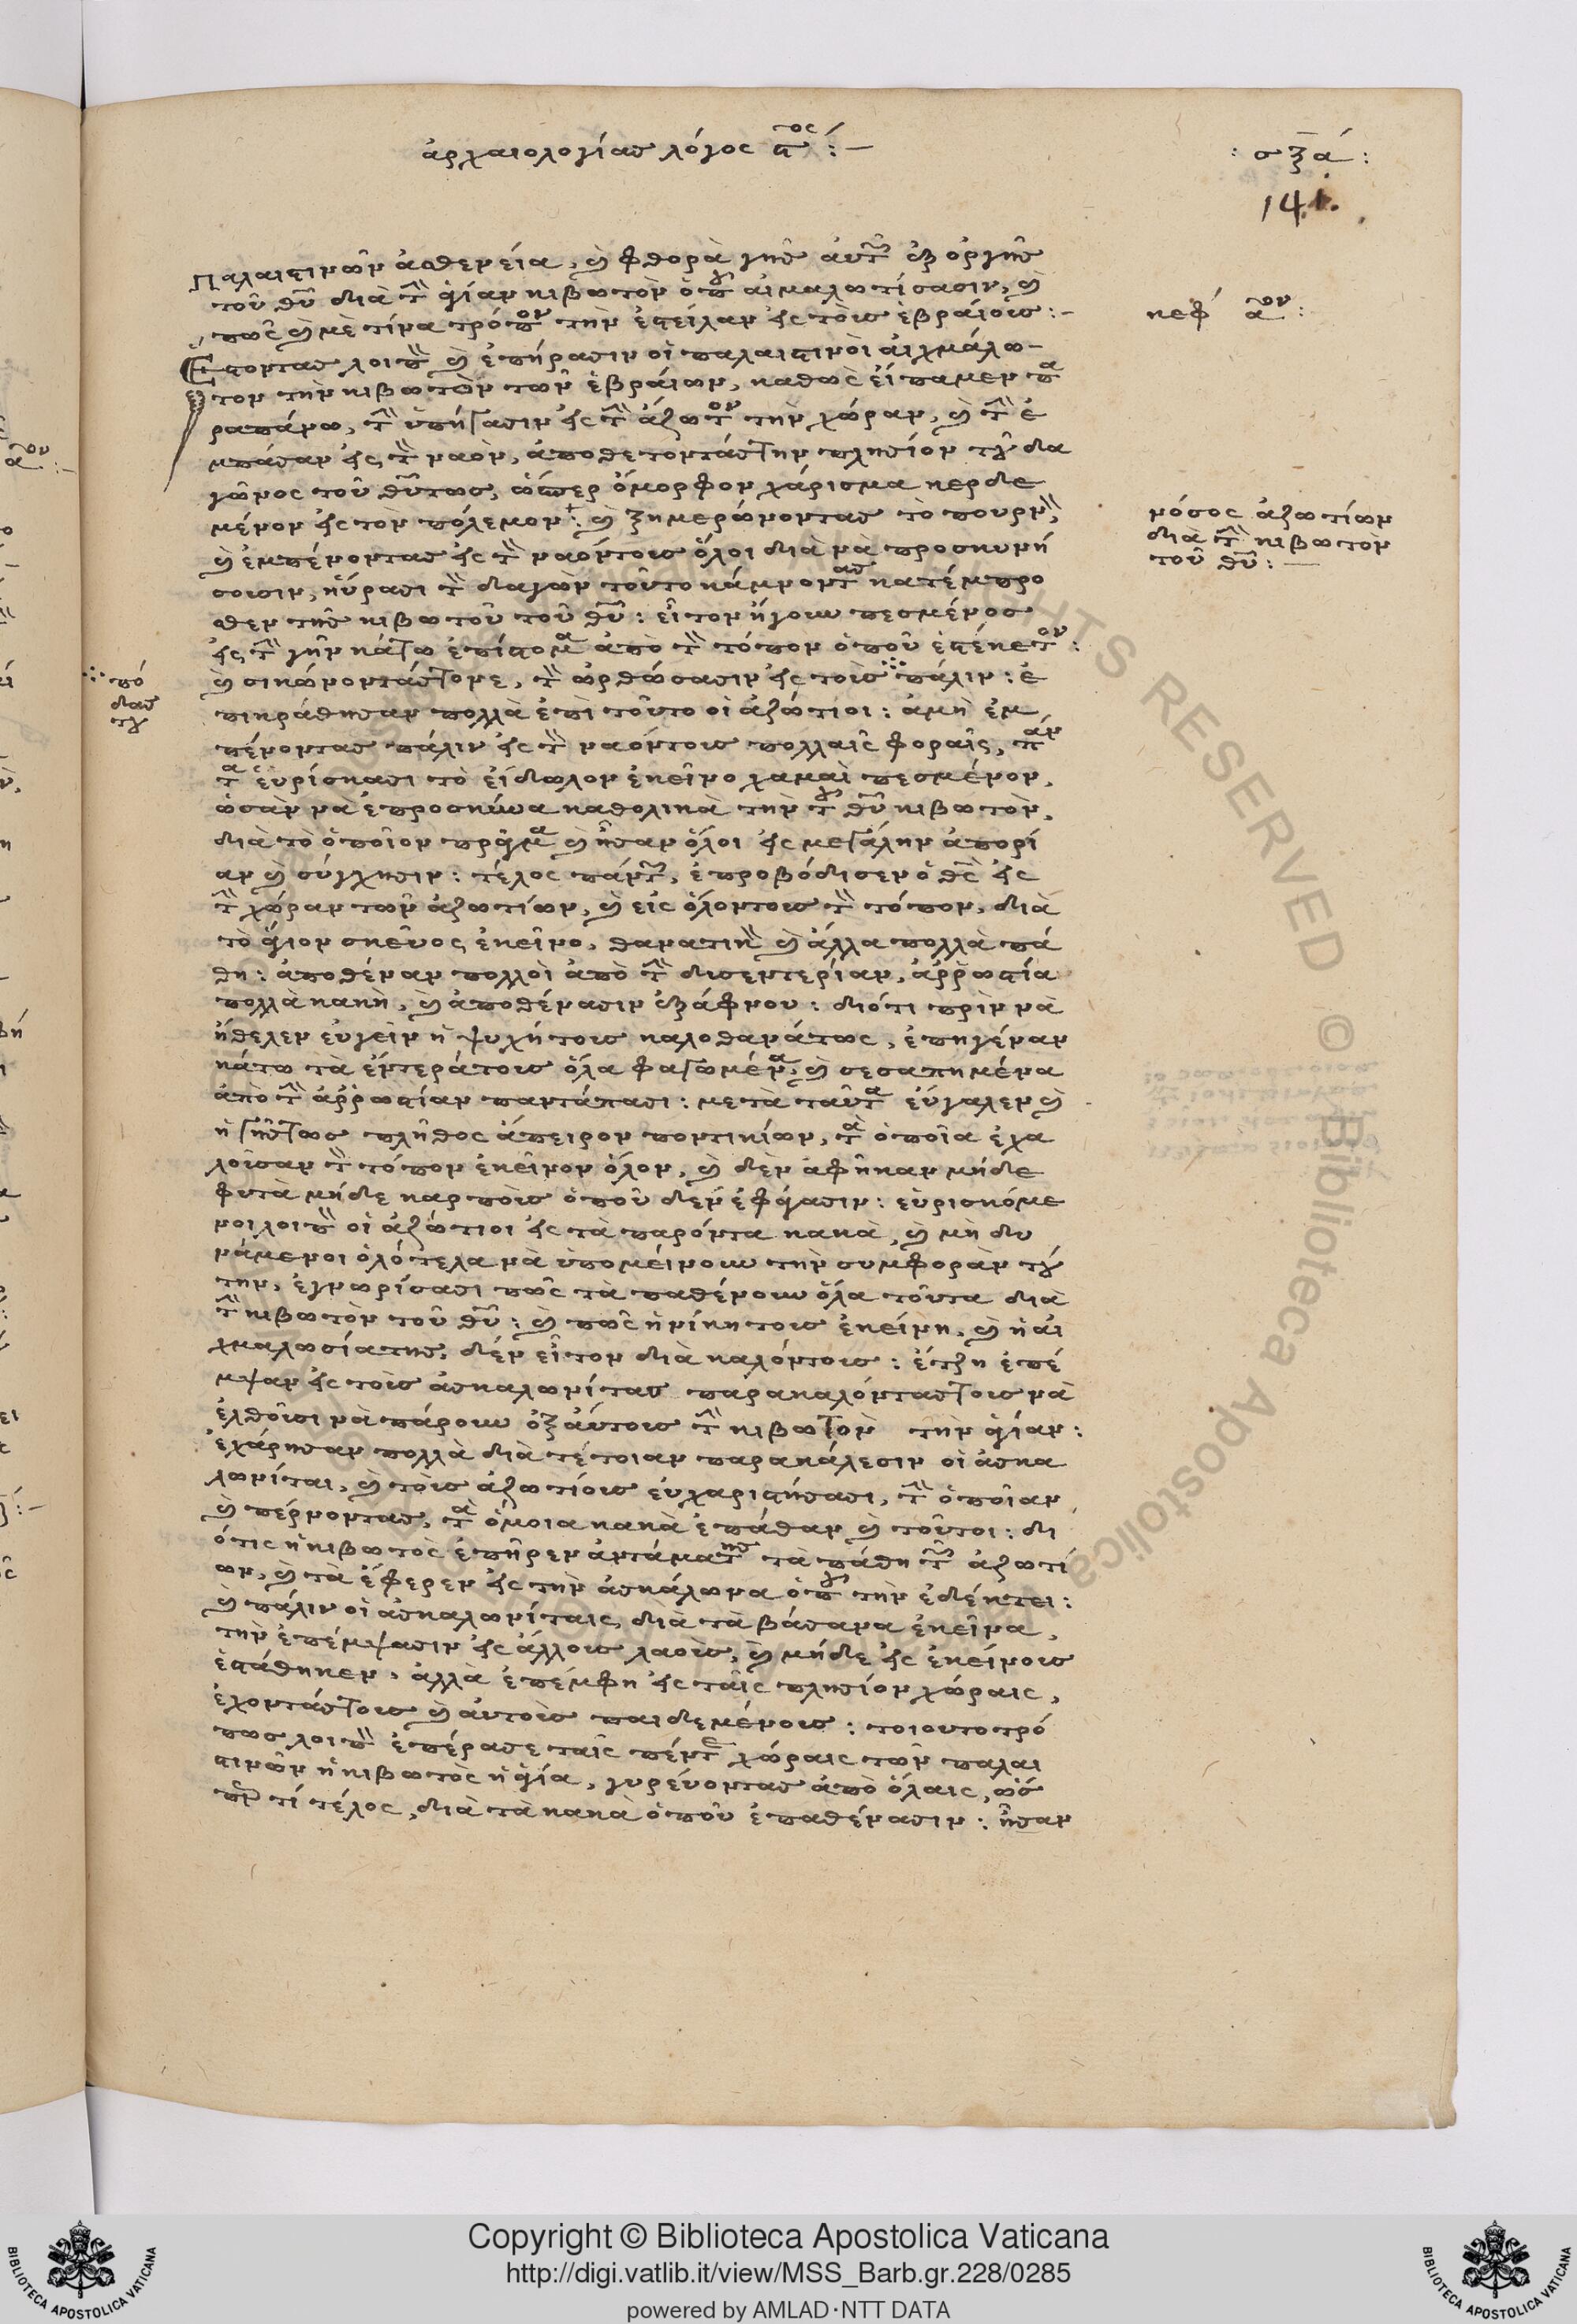 ἀρχαιολογίας λόγος ϛος :—
: σξα :
141.
Παλαιστινῶν ἀσθενεία, καὶ φθορὰ γῆς αὐτῶν ἐξ ὀργῆς
τοῦ θυ διὰ τὴν ἁγίαν κιβωτὸν ὁποῦ αἰμαλωτίσασιν, καὶ
πῶς καὶ μὲ τίνα τρόπον τὴν ἐστείλαν εἰς τοὺς ἑβραίους :—
κεφ αον :
Ἔστοντας λοιπὸν καὶ ἐπήρασιν οἱ παλαιστινοὶ αἰχμάλω-
τον τὴν κιβωτὸν τῶν ἑβραίων, καθὼς εἴπαμεν πα
ραπάνω, τὴν ὑπήγασιν εἰς τὴν ἄζωτον τὴν χώραν, καὶ τὴν ἐ
μπάσαν εἰς τὸν ναὸν, ἀποθέτοντάς την πλησίον τοῦ δα
γῶνος τοῦ θῦ τως, ὥσπερ ὄμορφον χάρισμα κερδε
μένον εἰς τὸν πόλεμον : καὶ ξημερώνοντας τὸ πουρνὸν,
νόσος ἀζωτίων
διὰ τὴν κιβωτὸν
τοῦ θυ :—
καὶ ἐμπένοντας εἰς τὸν ναόντους ὅλοι διὰ νὰ προσκυνή
σουσιν, ηὕρασι τὸν δαγὼν τοῦτο κάμνοντας κατέμπρο
σθεν τῆς κιβωτοῦ τοῦ θυ : εἶτον ἤγουν πεσμένος
εἰς τὴν γῆν κάτω ἐπίστομα ἀπὸ τὸν τόπον ὁποῦ ἐστέκετον :
καὶ σικώνοντάς τονε, τὸν ὠρθώσασιν εἰς τοὺς πάλιν : ἐ
πό
δας
του
πικράθησαν πολλὰ ἐπὶ τοῦτο οἱ ἀζώτιοι : ἀμὴ ἐμ
πένοντας πάλιν εἰς τὸν ναόντους πολλαῖς φοραῖς, πάν
τα εὑρίσκασι τὸ εἴδωλον ἐκεῖνο χαμαὶ πεσμένον,
ὡσὰν νὰ ἐπροσκύνα καθολικὰ τὴν τοῦ θυ κιβωτὸν,
διὰ τὸ ὁποῖον πρᾶγμα καὶ ἦσαν ὅλοι εἰς μεγάλην ἀπορί
αν καὶ σύγχησιν : τέλος πάντων, ἐπροβόδισεν ὁ θς εἰς
τὴν χώραν τῶν ἀζωτίων, καὶ εἰς ὅλοντους τὸν τόπον, διὰ
τὸ ἅγιον σκεῦος ἐκεῖνο, θανατικὸν καὶ ἄλλα πολλὰ πά
θη : ἀποθέναν πολλοὶ ἀπὸ τὴν δισεντερίαν, ἀῤῥωστία
πολλὰ κακὴ, καὶ ἀποθένασιν ἐξάφνου : διότι πρὶν νὰ
ἤθελεν εὐγεῖν ἡ ψυχήτους καλοθανάτως, ἐπηγέναν
κάτω τὰ ἐντεράτους ὅλα φαγωμένα, καὶ σεσαπημένα
ἀπὸ τὴν ἀῤῥωστίαν παντάπασι : μετὰ ταῦτα εὔγαλεν καὶ
ἡ γῆ τως πλῆθος ἄπειρον ποντικίων, τὰ ὁποῖα ἐχα
λοῦσαν τὸν τόπον ἐκεῖνον ὅλον, καὶ δὲν ἀφῆκαν μήδε
φυτὰ μήδε καρποὺς ὁποῦ δεν ἐφάγασιν : εὑρισκόμε
νοι λοιπὸν οἱ ἀζώτιοι εἰς τὰ παρόντα κακὰ, καὶ μὴ δυ
νάμενοι ὁλότελα νὰ ὑπομείνουν τὴν συμφορὰν τού
την, ἐγνωρίσασι πῶς τὰ παθένουν ὅλα τοῦτα διὰ
τὴν κιβωτὸν τοῦ θυ : καὶ πῶς ἡ νίκη τους ἐκείνη, καὶ ἡ αἰ
χμαλωσίατης, δέν εἶτον διὰ καλόντους : ἔτζη ἐπέ
μψαν εἰς τοὺς ἀσκαλωνίτας παρακαλόντας τους νὰ
ἐλθοῦσι νὰ πάρουν ὀξαύτους τὴν κιβωτὸν τὴν ἁγίαν :
ἐχάρησαν πολλὰ διὰ τέτοιαν παρακάλεσιν οἱ ἀσκα
λωνίται, καὶ τοὺς ἀζωτίους εὐχαριστήσασι, τὴν ὁποῖαν
καὶ πέρνοντας, τὰ ὅμοια κακὰ ἐπάθαν καὶ τοῦτοι : δι
ότις ἡ κιβωτὸς ἐπῆρεν ἀντάματης τὰ πάθη τῶν ἀζωτί
ων, καὶ τὰ ἔφερεν εἰς τὴν ἀσκάλωνα ὁποῦ τὴν ἐδέκτει :
καὶ πάλιν οἱ ἀσκαλωνίταις, διὰ τὰ βάσανα ἐκεῖνα,
τὴν ἐπέμψασιν εἰς ἄλλους λαοὺς, καὶ μήδε εἰς ἐκείνους
ἐστάθηκεν, ἀλλὰ ἐπέμφη εἰς ταῖς πλησίον χώραις,
ἐχοντάς τους καὶ αὐτοὺς παιδεμένους : τοιουτοτρό
πως λοιπὸν ἐπέρασε ταῖς πέντε χώραις τῶν παλαι
στινῶν ἡ κιβωτὸς ἡ ἁγία, γυρεύοντας ἀπὸ ὅλαις, ὡσ
πέρ τί τέλος, διὰ τὰ κακὰ ὁποῦ ἐπαθένασιν : ἦσαν
Copyright © Biblioteca Apostolica Vaticana
http://digi.vatlib.it/view/MSS_Barb.gr.228/0285
powered by AMLAD·NTT DATA